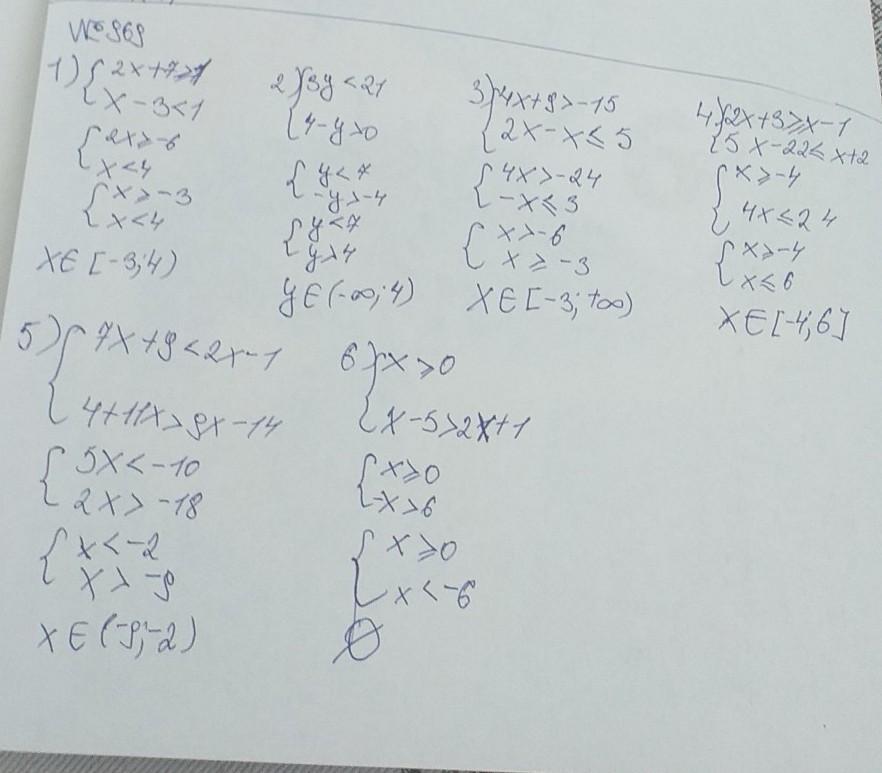 №969
1) { 2x+7≥1
{ x-3<1
{ 2x≥-6
{ x<4
{ x≥-3
{ x<4
x∈[-3;4)
2) { 3y<21
{ 4-y>0
{ y<7
{ -y>-4
{ y<7
{ y>4
y∈(-∞;4)
3) { 4x+9>-15
{ 2x-x≤5
{ 4x>-24
{ -x≤3
{ x>-6
{ x≥-3
x∈[-3;+∞)
4) { 2x+3≥x-1
{ 5x-22≤x+2
{ x≥-4
{ 4x≤24
{ x≥-4
{ x≤6
x∈[-4;6]
5) { 7x+9<2x-1
{ 4+11x>9x-14
{ 5x<-10
{ 2x>-18
{ x<-2
{ x>-9
x∈(-9;-2)
6) { x≥0
{ x-5>2x+1
{ x≥0
{ -x>6
{ x≥0
{ x<-6
∅